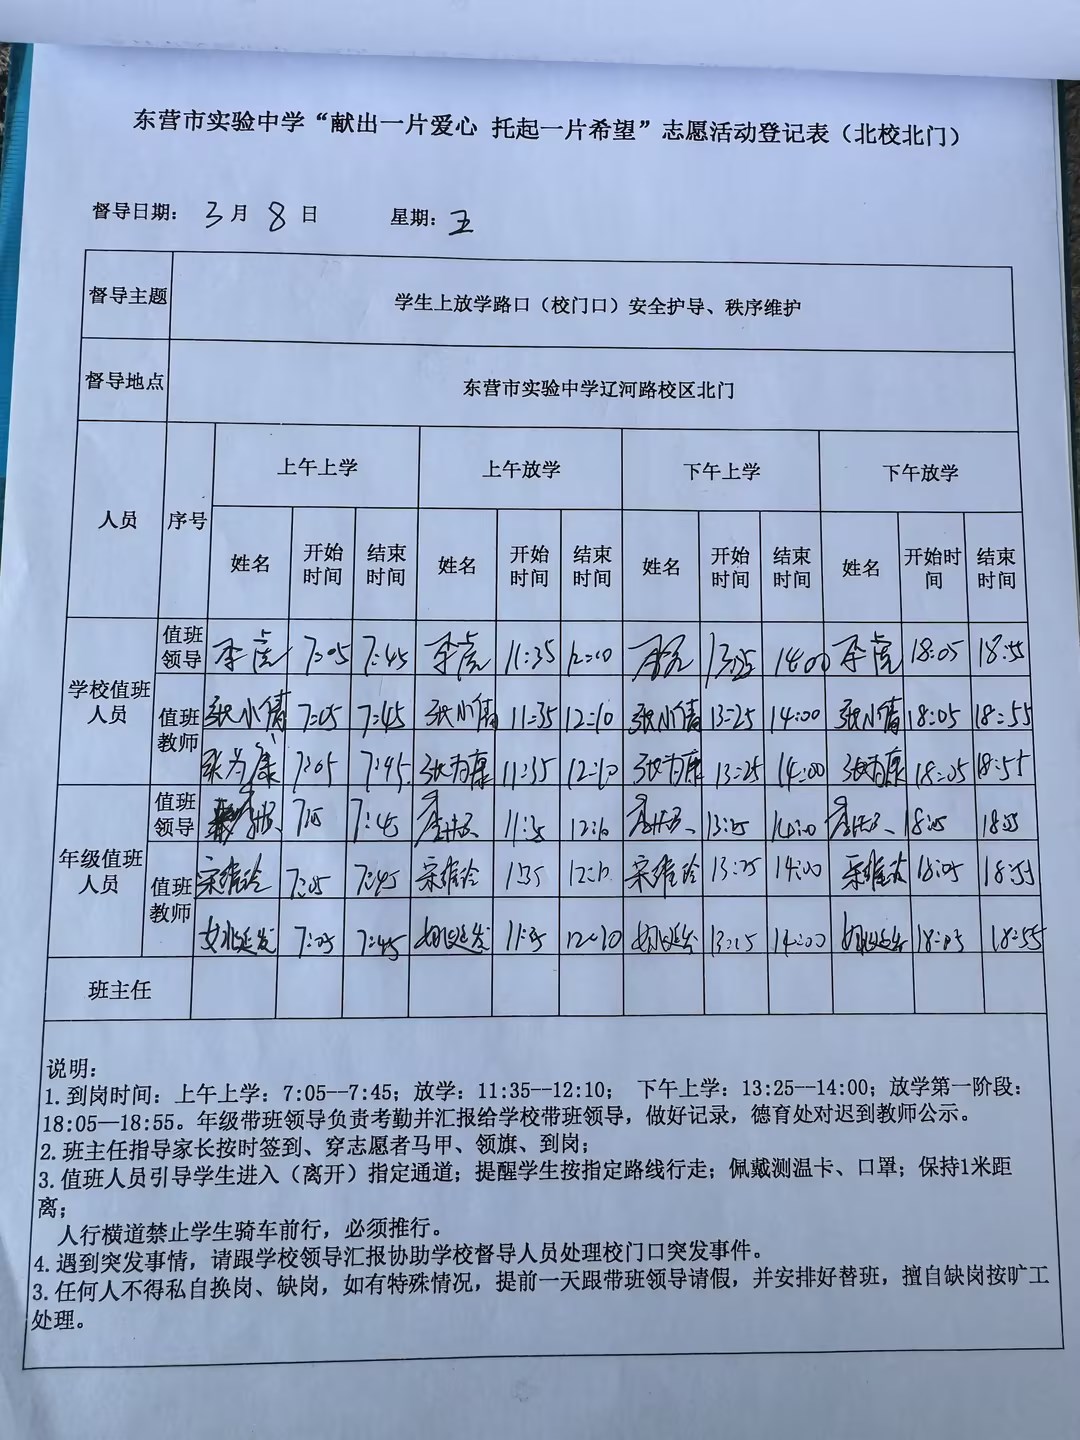 东营市实验中学“献出一片爱心 托起一片希望”志愿活动登记表（北校北门）
督导日期： 3月 8 日 星期：五
督导主题 学生上放学路口（校门口）安全护导、秩序维护
督导地点 东营市实验中学辽河路校区北门
人员 序号 上午上学 上午放学 下午上学 下午放学
姓名 开始时间 结束时间 姓名 开始时间 结束时间 姓名 开始时间 结束时间 姓名 开始时间 结束时间
学校值班人员 值班领导 7:05 7:45 11:35 12:10 13:25 14:00 18:05 18:55
值班教师 张小倩 7:05 7:45 张小倩 11:35 12:10 张小倩 13:25 14:00 张小倩 18:05 18:55
张为康 7:05 7:45 张为康 11:35 12:10 张为康 13:25 14:00 张为康 18:05 18:55
年级值班人员 值班领导 7:45 12:10 14:00 18:05 18:55
值班教师 宋维玲 7:05 7:45 宋维玲 1135 12:10 宋维玲 13:25 14:00 宋维玲 18:05 18:55
7:05 7:45 11:35 12:10 14:00 18:05 18:55
班主任
说明：
1.到岗时间：上午上学：7:05--7:45；放学：11:35--12:10； 下午上学：13:25--14:00；放学第一阶段：
18:05—18:55。年级带班领导负责考勤并汇报给学校带班领导，做好记录，德育处对迟到教师公示。
2.班主任指导家长按时签到、穿志愿者马甲、领旗、到岗；
3.值班人员引导学生进入（离开）指定通道；提醒学生按指定路线行走；佩戴测温卡、口罩；保持1米距
离；
人行横道禁止学生骑车前行，必须推行。
4.遇到突发事情，请跟学校领导汇报协助学校督导人员处理校门口突发事件。
3.任何人不得私自换岗、缺岗，如有特殊情况，提前一天跟带班领导请假，并安排好替班，擅自缺岗按旷工
处理。